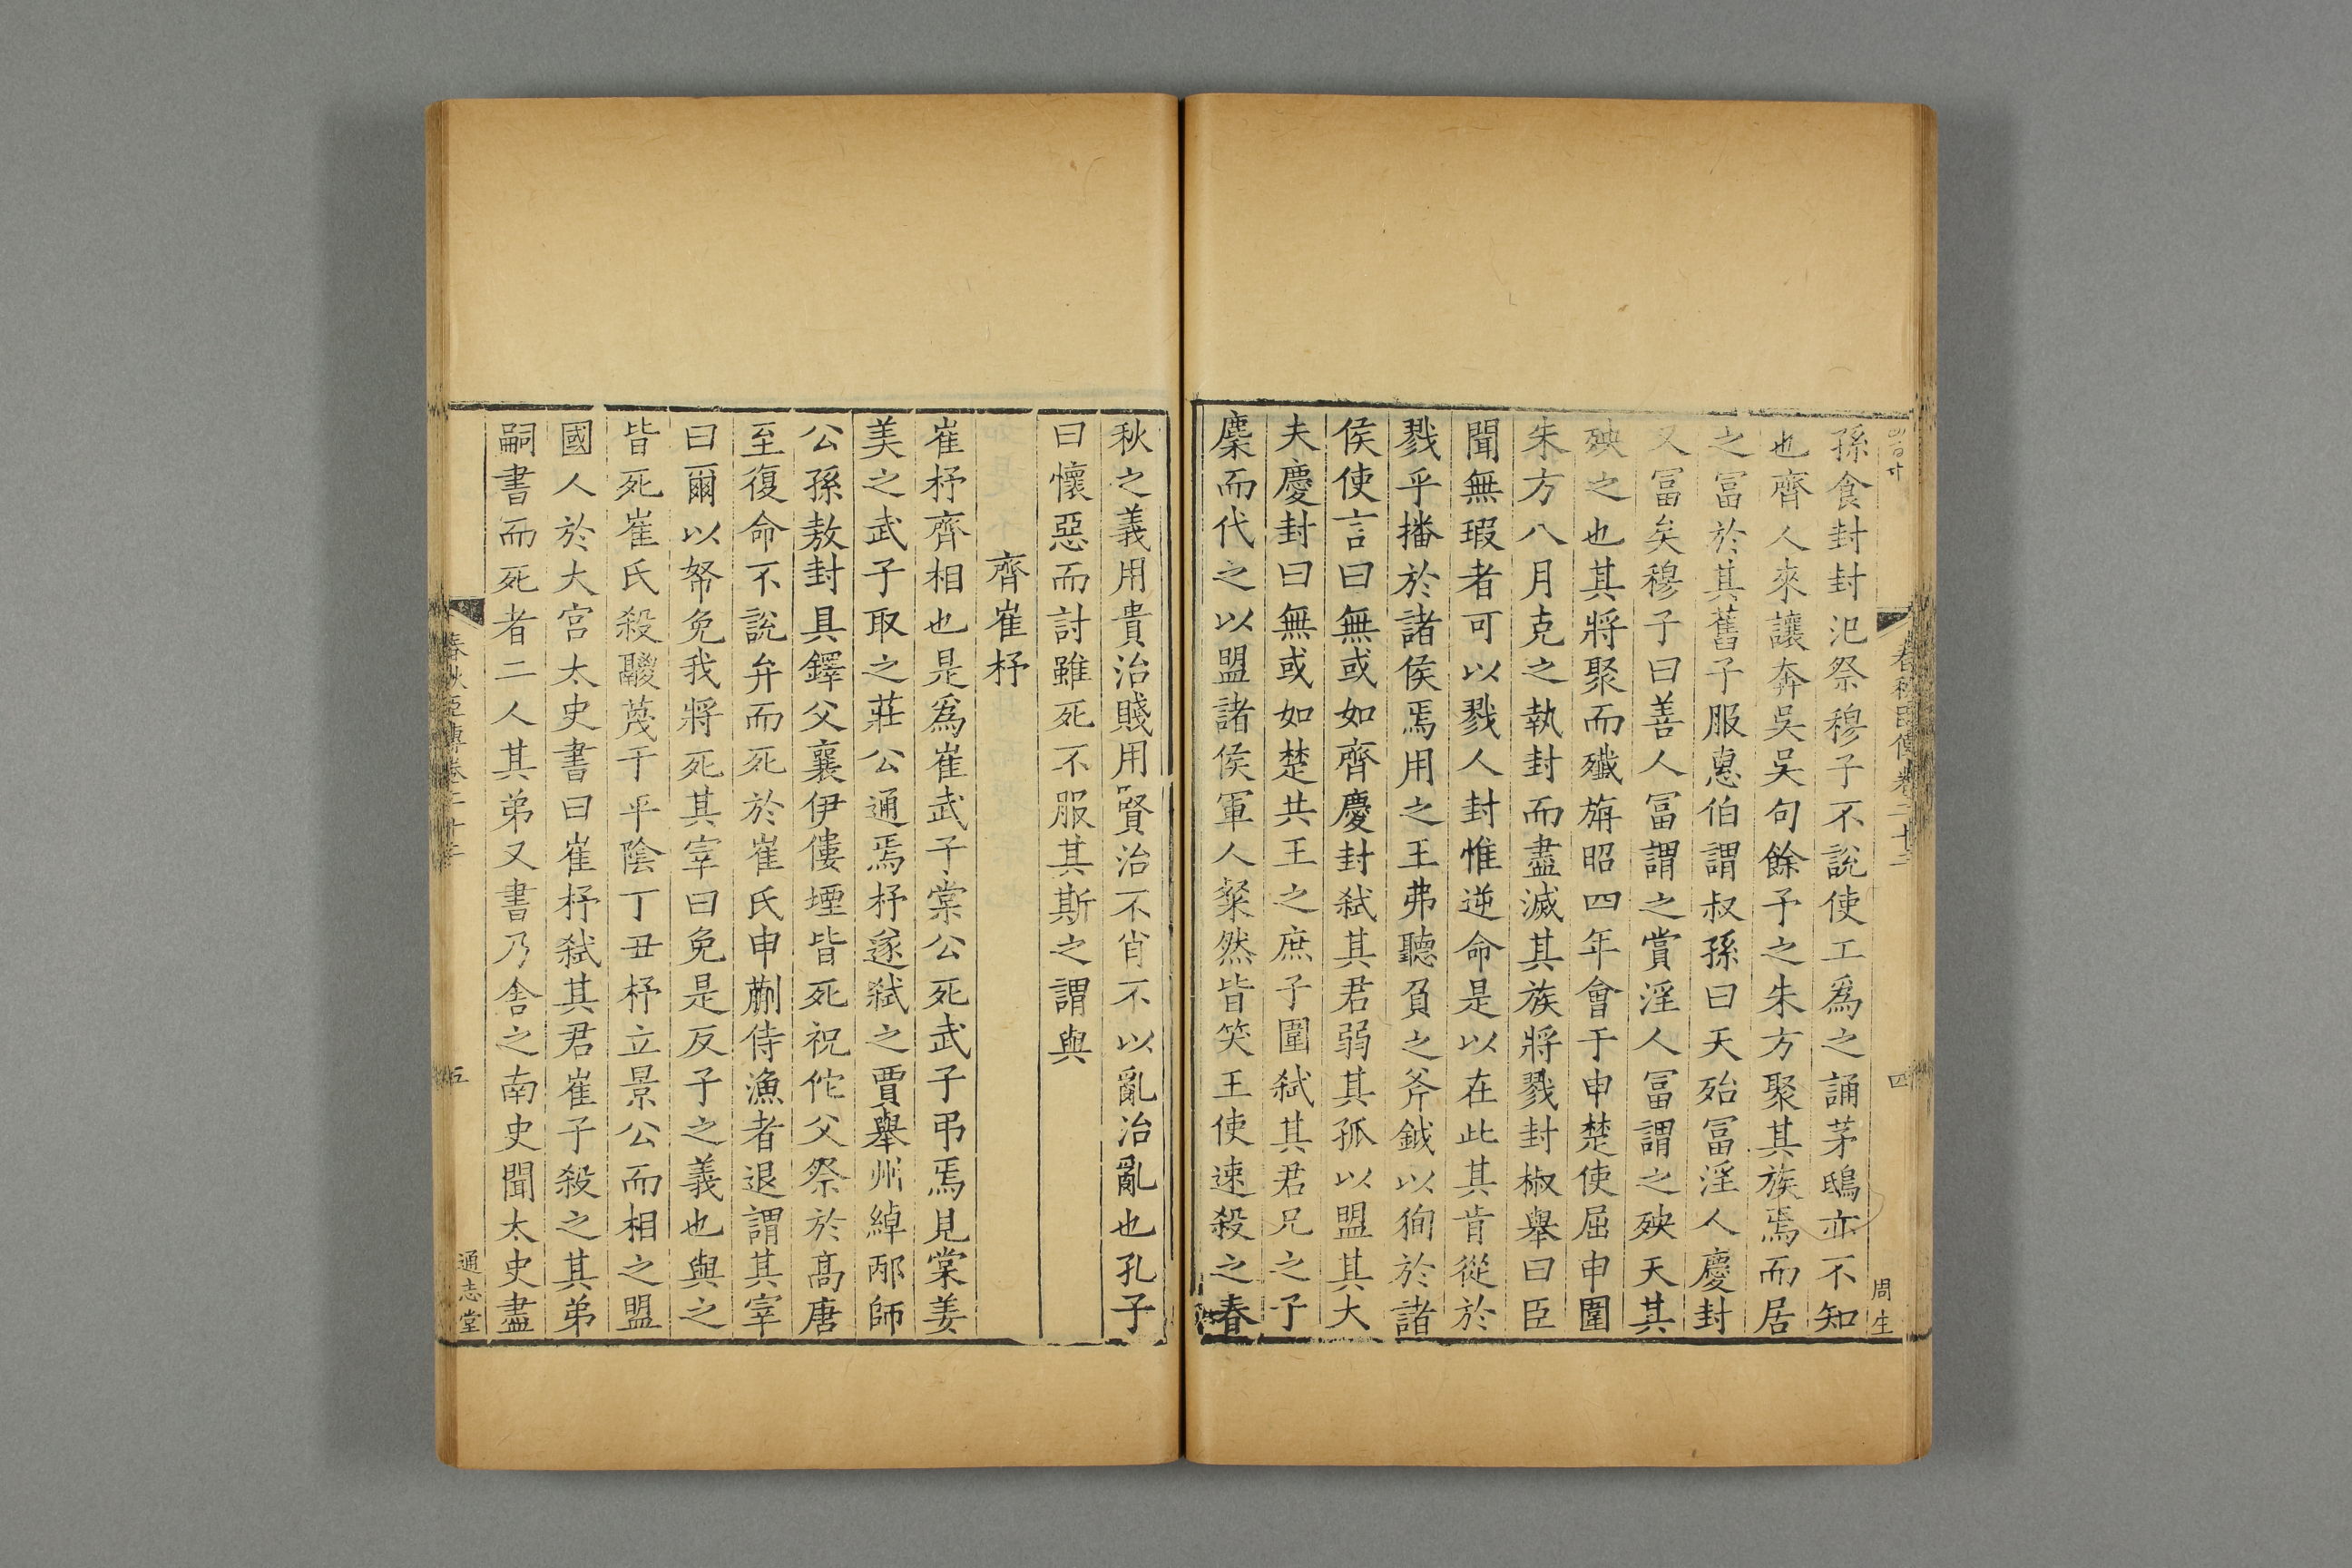 春秋臣傳卷二十三
四
周生
孫食封封汜祭穆子不說使工爲之誦茅鴟亦不知
也齊人來讓奔吳吳句餘予之朱方聚其族焉而居
之冨於其舊子服惠伯謂叔孫曰天殆冨淫人慶封
又冨矣穆子曰善人冨謂之賞淫人冨謂之殃天其
殃之也其將聚而殲旃昭四年會于申楚使屈申圍
朱方八月克之執封而盡滅其族將戮封椒舉曰臣
聞無瑕者可以戮人封惟逆命是以在此其肯從於
戮乎播於諸侯焉用之王弗聽負之斧鉞以徇於諸
侯使言曰無或如齊慶封弑其君弱其孤以盟其大
夫慶封曰無或如楚共王之庶子圍弑其君兄之子
麇而代之以盟諸侯軍人粲然皆笑王使速殺之春
秋之義用貴治賤用賢治不肖不以亂治亂也孔子
曰懷惡而討雖死不服其斯之謂與
齊崔杼
崔杼齊相也是爲崔武子棠公死武子弔焉見棠姜
美之武子取之莊公通焉杼遂弑之賈舉州綽邴師
公孫敖封具鐸父襄伊僂堙皆死祝佗父祭於高唐
至復命不說弁而死於崔氏申蒯侍漁者退謂其宰
曰爾以帑免我將死其宰曰免是反子之義也與之
皆死崔氏殺鬷蔑于平陰丁丑杼立景公而相之盟
國人於大宮太史書曰崔杼弑其君崔子殺之其弟
嗣書而死者二人其弟又書乃舍之南史聞太史盡
春秋臣傳卷二十三
五
通志堂